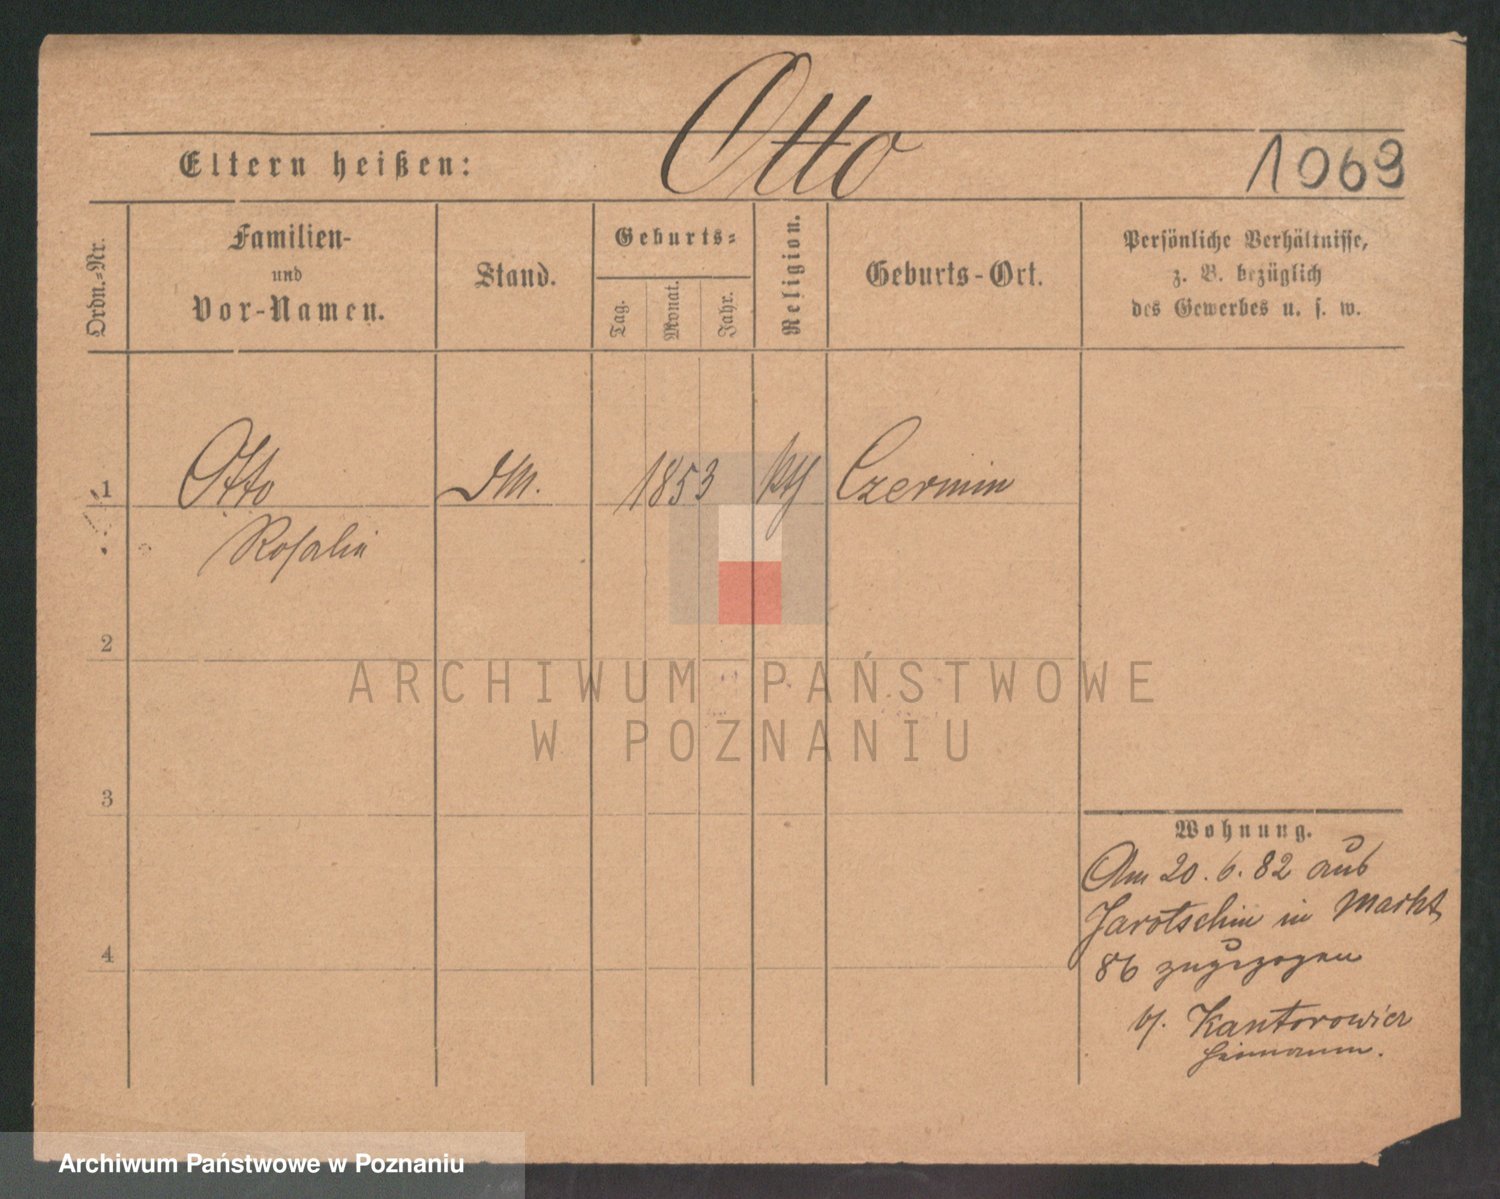 Otto
Eltern heißen:
1069
Ordn.-Nr.
Familien-
und
Vor-Namen.
Stand.
Geburts-
Tag.
Monat.
Jahr.
Religion.
Geburts-Ort.
Persönliche Verhältnisse,
z. B. bezüglich
des Gewerbes u. s. w.
1
Otto
1853
Czermin
Rosalie
2
ARCHIWUM PAŃSTWOWE
W POZNANIU
3
4
Wohnung.
Am 20. 6. 82 aus
Jarotschin in Markt
86 zugezogen
b/. Kantorowicz
Archiwum Państwowe w Poznaniu